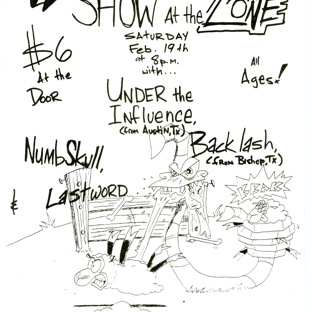 SHOW At the ZONE
SATURDAY
Feb. 19th
at 8p.m.
with...
$6
At the
DOOR
All
Ages!
UNDER the
Influence,
(from Austin,Tx)
Backlash,
(from Bishop,Tx)
NumbSkull,
& Lastword